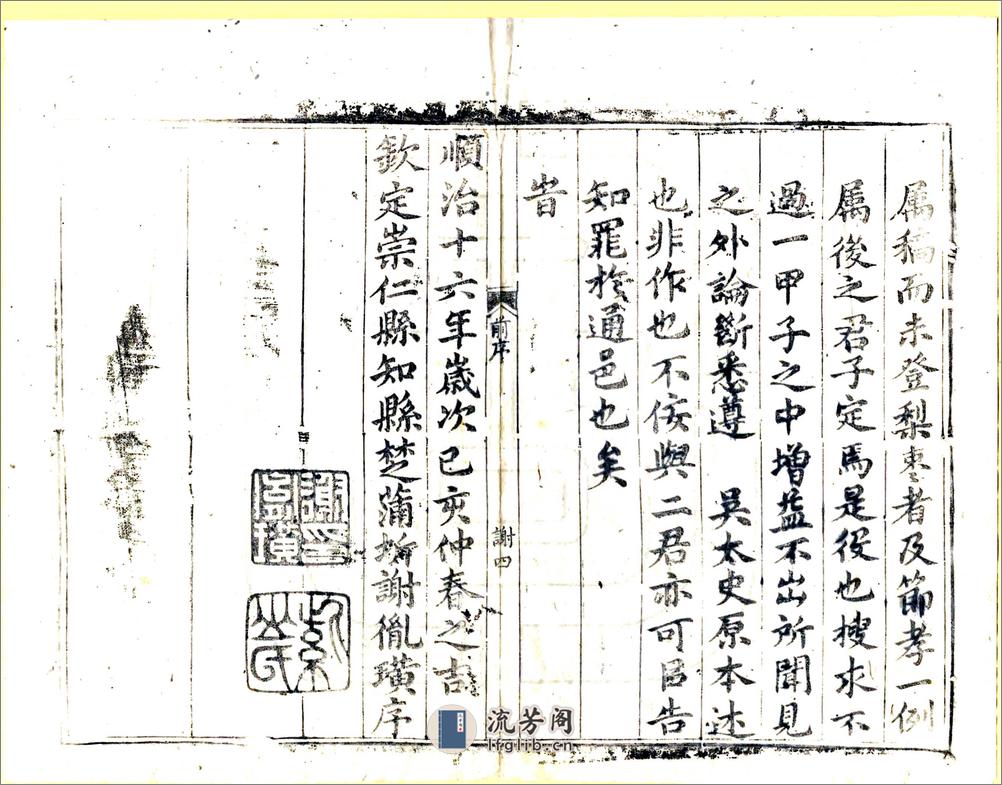 属稿而未登梨枣者及節孝一例
属後之君子定焉是役也搜求不
過一甲子之中增益不出所聞見
之外論斷悉遵　吳太史原本述
也非作也不佞與二君亦可㠯告
知罪扵通邑也矣
旹
順治十六年歲次己亥仲春之吉
欽定崇仁縣知縣楚蒲圻謝胤璜序
前序
謝四
謝印胤璜
氏
流芳阁
lfglib.cn